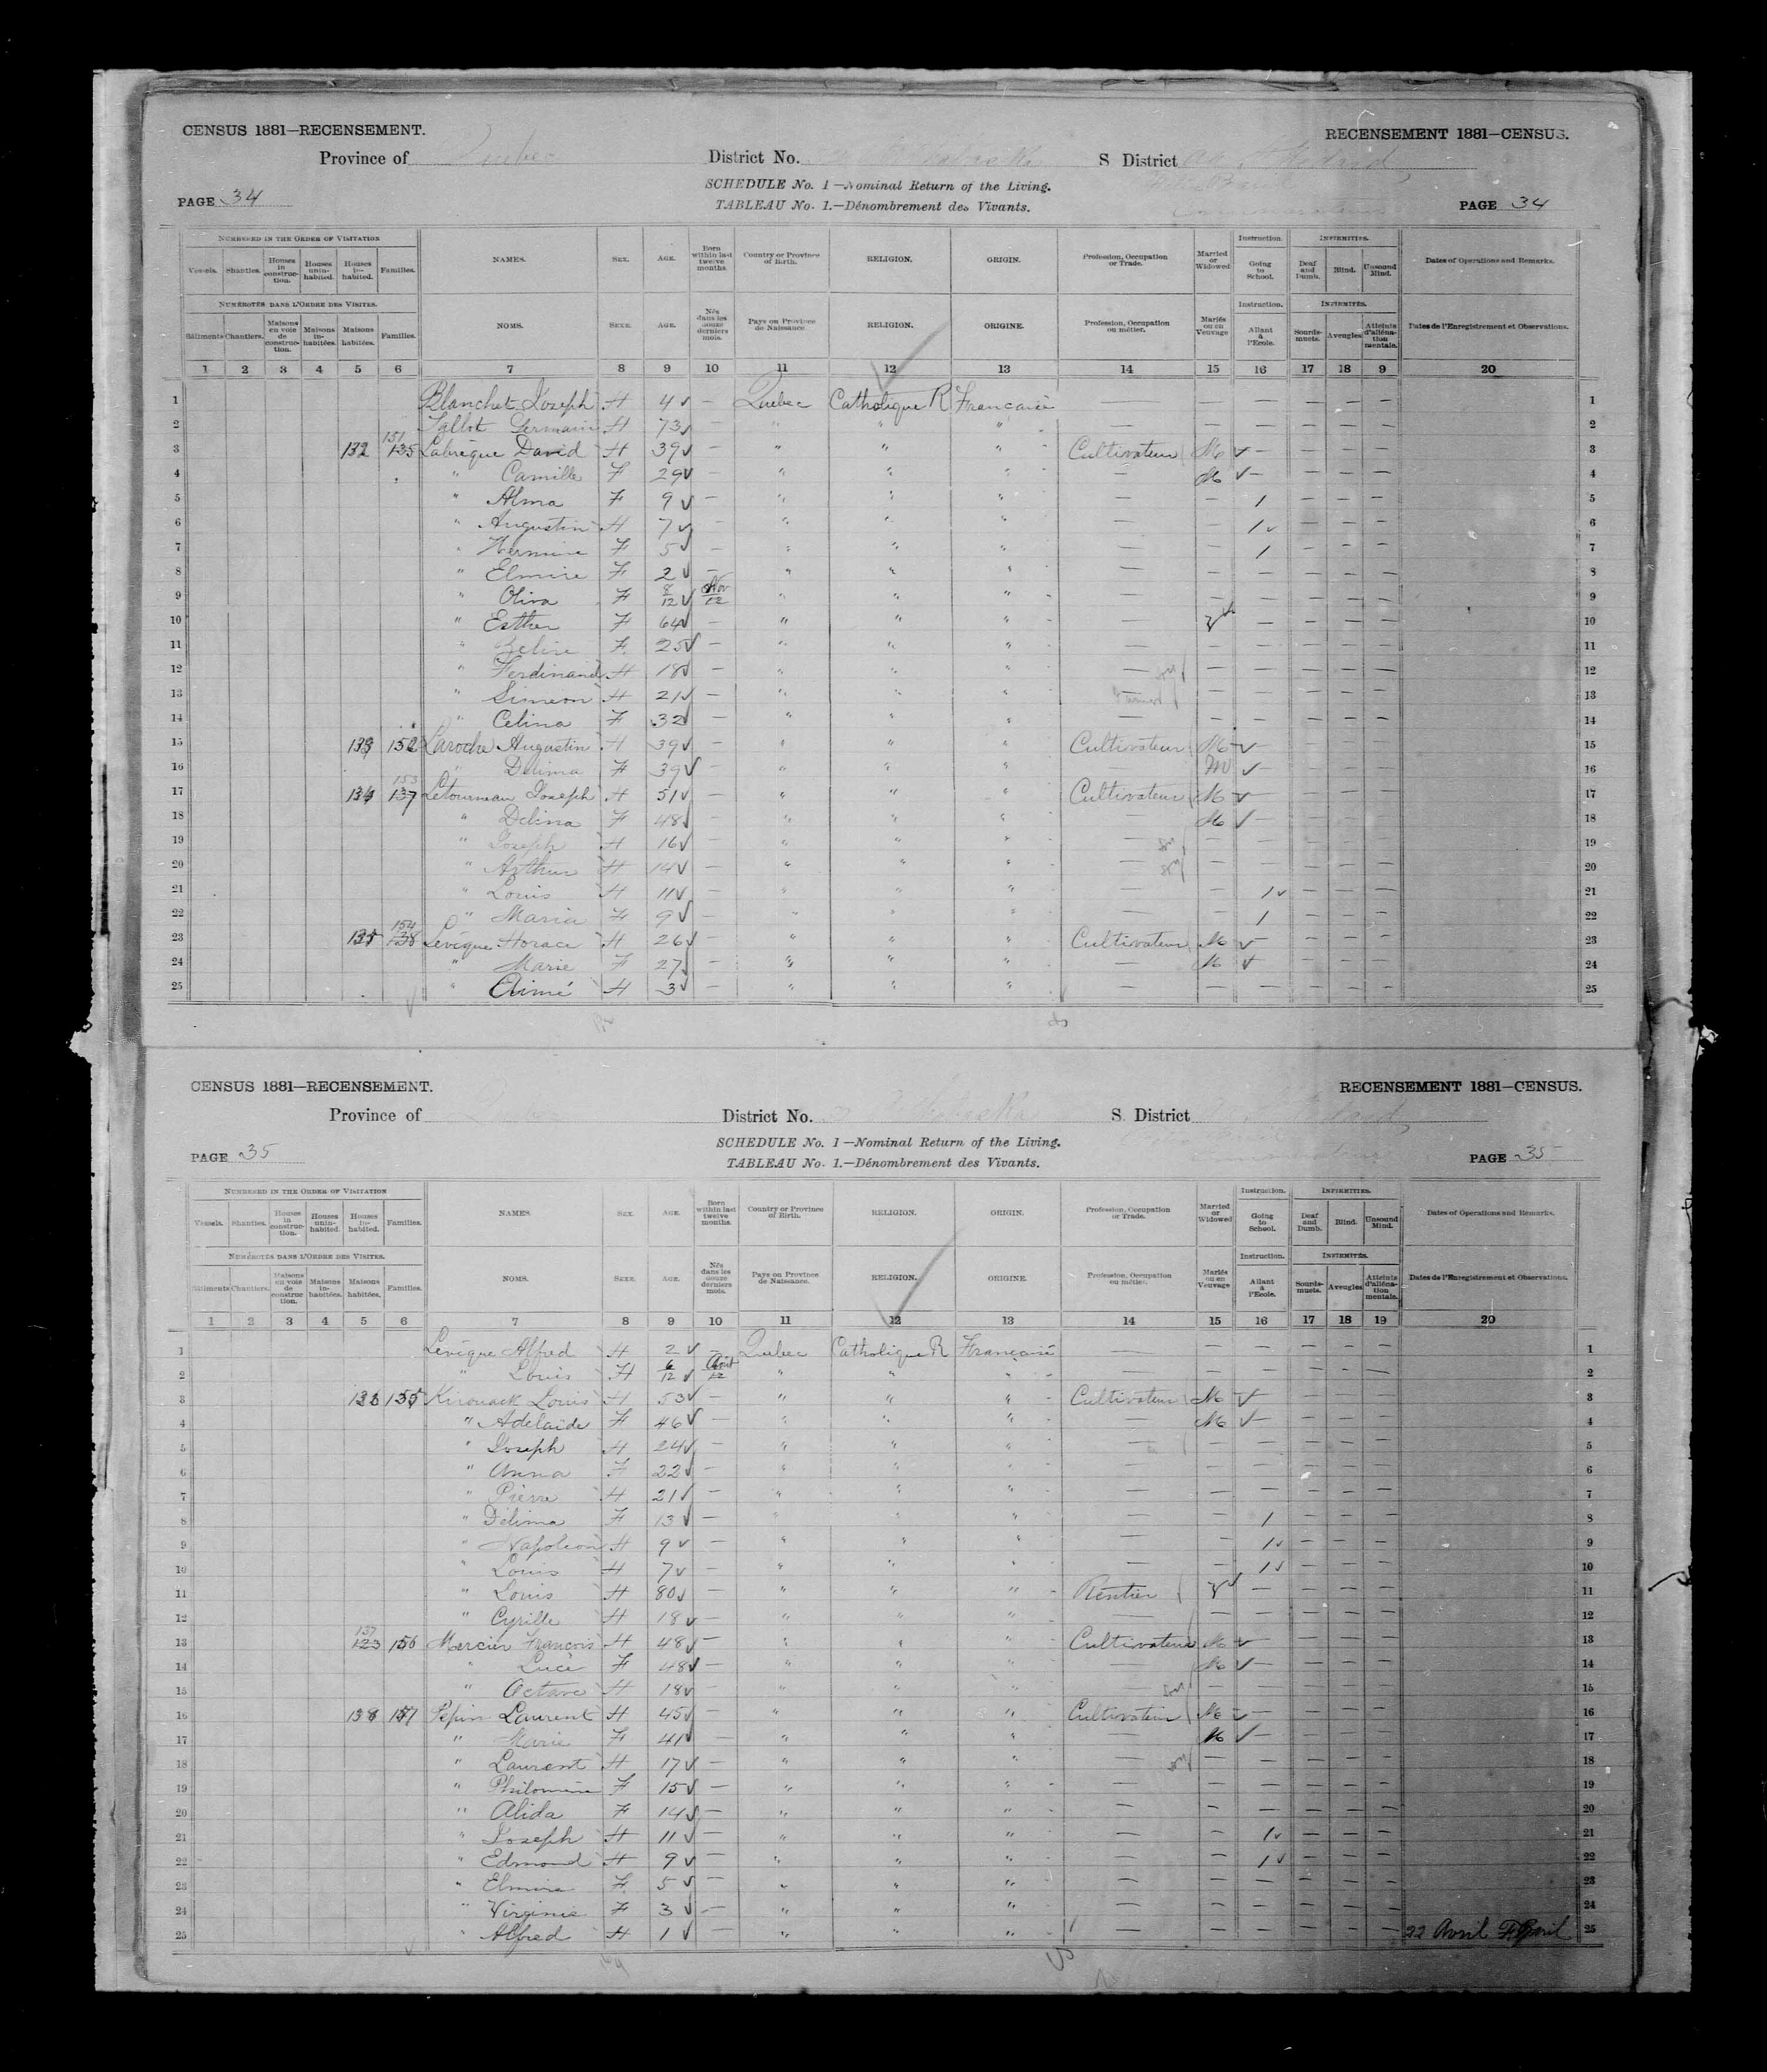 CENSUS 1881—RECENSEMENT. RECENSEMENT 1881—CENSUS.
Province of Quebec District No. S District
SCHEDULE No. 1—Nominal Return of the Living.
PAGE 34 TABLEAU No. 1.—Dénombrement des Vivants. PAGE 34
NUMBERED IN THE ORDER OF VISITATION NAMES. SEX. AGE. Born within last twelve months. Country or Province of Birth. RELIGION. ORIGIN. Profession, Occupation or Trade. Married or Widowed Instruction. Going to School. INFIRMITIES. Dates of Operations and Remarks.
Vessels. Shanties. Houses in construction. Houses uninhabited. Houses inhabited. Families. Deaf and Dumb. Blind. Unsound Mind.
NUMÉROTÉS DANS L'ORDRE DES VISITES. NOMS. SEXE. AGE. Nés dans les douze derniers mois. Pays ou Province de Naissance. RELIGION. ORIGINE. Profession, Occupation ou métier. Mariés ou en Veuvage Instruction. Allant à l'Ecole. INFIRMITÉS. Dates de l'Enregistrement et Observations.
Bâtiments Chantiers. Maisons en voie de construction. Maisons inhabitées. Maisons habitées. Families. Sourds-muets. Aveugles Atteints d'aliénation mentale.
1 2 3 4 5 6 7 8 9 10 11 12 13 14 15 16 17 18 9 20
1 Blanchet Joseph H 4 — Quebec Catholique R Francaise — 1
2 Germain H 73 — " " " — 2
3 132 151 135 Labrèque David H 39 — " " " Cultivateur M — 3
4 " Camille F 29 — " " " — M — 4
5 " Alma F 9 — " " " — — 1 5
6 " Augustin H 7 — " " " — — 1 6
7 " Hermine F 5 — " " " — 1 7
8 " Elmire F 2 — " " " — 8
9 " Oliva F 8/12 Nov 12 " " " — 9
10 " Esther F 64 — " " " — 10
11 " F 25 — " " " — 11
12 " Ferdinand H 18 — " " " — 12
13 " Simeon H 21 — " " " — 13
14 " Celina F 32 — " " " — 14
15 133 152 Laroche Augustin H 39 — " " " Cultivateur M — 15
16 " Delima F 39 — " " " — M 16
17 134 153 137 Letourneau Joseph H 51 — " " " Cultivateur M — 17
18 " Delima F 48 — " " " — M — 18
19 " Joseph H 16 — " " " — 19
20 " Arthur H 14 — " " " — 20
21 " Louis H 11 — " " " — — 1 21
22 " Maria F 9 — " " " — — 1 22
23 135 154 138 Levêque Horace H 26 — " " " Cultivateur M — 23
24 " Marie F 27 — " " " — M 24
25 " Aimé H 3 — " " " — 25
CENSUS 1881—RECENSEMENT. RECENSEMENT 1881—CENSUS.
Province of Quebec District No. S. District
SCHEDULE No. 1—Nominal Return of the Living.
PAGE 35 TABLEAU No. 1.—Dénombrement des Vivants. PAGE 35
NUMBERED IN THE ORDER OF VISITATION NAMES. SEX. AGE. Born within last twelve months. Country or Province of Birth. RELIGION. ORIGIN. Profession, Occupation or Trade. Married or Widowed Instruction. Going to School. INFIRMITIES. Dates of Operations and Remarks.
Vessels. Shanties. Houses in construction. Houses uninhabited. Houses inhabited. Families. Deaf and Dumb. Blind. Unsound Mind.
NUMÉROTÉS DANS L'ORDRE DES VISITES. NOMS. SEXE. AGE. Nés dans les douze derniers mois. Pays ou Province de Naissance. RELIGION. ORIGINE. Profession, Occupation ou métier. Mariés ou en Veuvage Instruction. Allant à l'Ecole. INFIRMITÉS. Dates de l'Enregistrement et Observations.
Bâtiments Chantiers. Maisons en voie de construction. Maisons inhabitées. Maisons habitées. Families. Sourds-muets. Aveugles Atteints d'aliénation mentale.
1 2 3 4 5 6 7 8 9 10 11 12 13 14 15 16 17 18 19 20
1 Levêque Alfred H 2 — Quebec Catholique R Française — 1
2 " Louis H 6/12 12 " " " — 2
3 136 155 Kirouack Louis H 53 — " " " Cultivateur M 3
4 " Adelaide F 46 — " " " — M — 4
5 " Joseph H 24 — " " " — 5
6 " Anna F 22 — " " " — 6
7 " Pierre H 21 — " " " — 7
8 " Délima F 13 — " " " — 1 8
9 " Napoleon H 9 — " " " — — 1 9
10 " Louis H 7 — " " " — — 1 10
11 " Louis H 80 — " " " Rentier — 11
12 " Cyrille H 18 — " " " — 12
13 137 123 156 Mercier Francois H 48 — " " " Cultivateur M — 13
14 " Luce F 48 — " " " — M — 14
15 " Octave H 18 — " " " — 15
16 138 157 Pepin Laurent H 45 — " " " Cultivateur M — 16
17 " Marie F 41 — " " " — M — 17
18 " Laurent H 17 — " " " — 18
19 " Philomène F 15 — " " " — 19
20 " Alida F 14 — " " " — 20
21 " Joseph H 11 — " " " — — 1 21
22 " Edmond H 9 — " " " — — 1 22
23 " Elmire F 5 — " " " — 23
24 " Virginie F 3 — " " " — 24
25 " Alfred H 1 — " " " — 22 Avril April 25